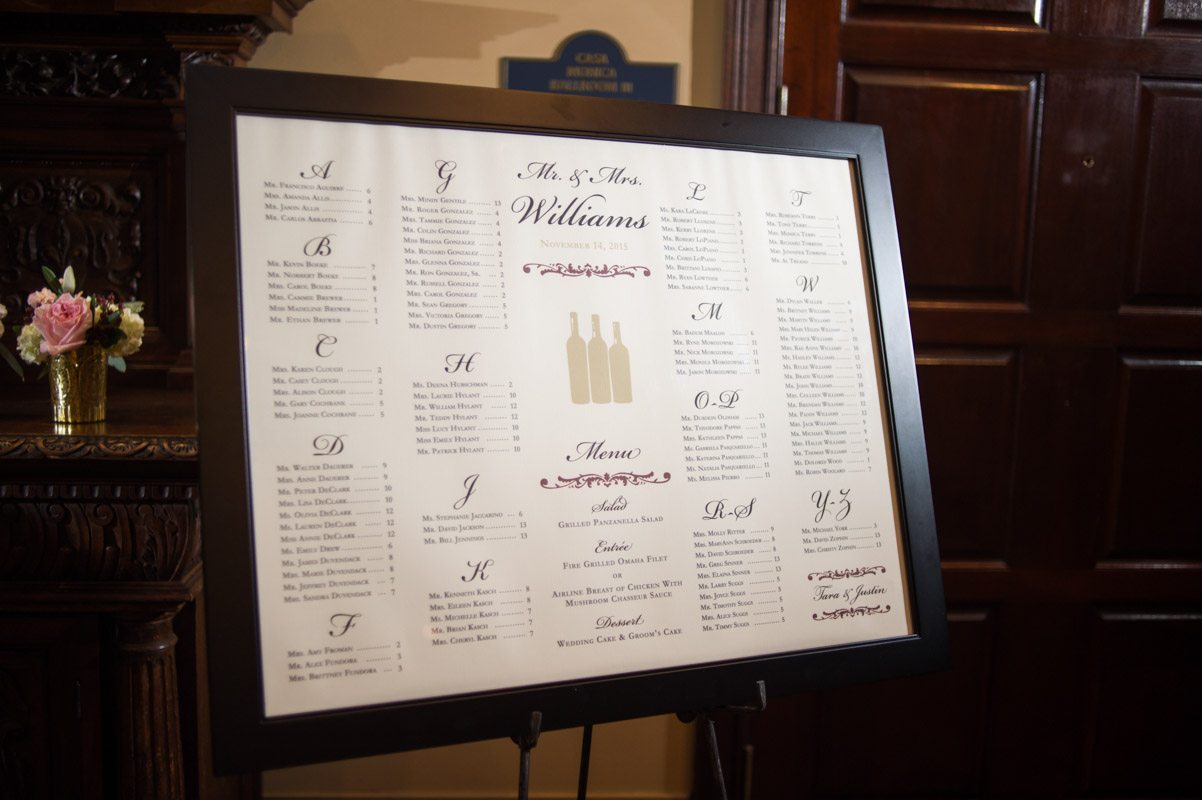 CASA
MONICA
BALLROOM III
A
Mr. Francisco Aguirre ...... 6
Mrs. Amanda Allis ........... 4
Mr. Jason Allis ........... 4
Mr. Carlos Arratia ......... 6
B
Mr. Kevin Boeke ......... 7
Mr. Norbert Boeke ...... 8
Mrs. Carol Boeke ........ 8
Mrs. Cammie Brewer ....... 1
Miss Madeline Brewer ..... 1
Mr. Ethan Brewer ........ 1
C
Mrs. Karen Clough ........ 2
Mr. Casey Clough ........ 2
Mrs. Alison Clough ....... 2
Mr. Gary Cochrane ....... 5
Mrs. Joanne Cochrane .... 5
D
Mr. Walter Dauerer ...... 9
Mrs. Anne Dauerer ....... 9
Mr. Peter DeClark ....... 10
Mrs. Lisa DeClark ........ 10
Ms. Olivia DeClark ....... 12
Ms. Lauren DeClark ...... 12
Miss Annie DeClark ...... 12
Ms. Emily Drew ........ 6
Mr. James Duvendack ..... 8
Mrs. Marie Duvendack .... 8
Mr. Jeffrey Duvendack ... 7
Mrs. Sandra Duvendack ... 7
F
Mrs. Amy Froman ........ 2
Mr. Alice Fundora ......... 3
Mrs. Brittney Fundora ... 3
G
Mrs. Mindy Gentile ........ 13
Mr. Roger Gonzalez ..... 4
Mrs. Tammie Gonzalez ... 4
Mr. Colin Gonzalez ....... 4
Miss Briana Gonzalez .... 4
Mr. Richard Gonzalez ..... 2
Mrs. Glenna Gonzalez ..... 2
Mr. Ron Gonzalez, Sr. ... 2
Mr. Russell Gonzalez .... 2
Mrs. Carol Gonzalez ..... 2
Mr. Sean Gregory ........ 5
Mrs. Victoria Gregory ..... 5
Mr. Dustin Gregory ....... 5
H
Ms. Deena Hubschman ..... 2
Mrs. Laurie Hylant ...... 10
Mr. William Hylant ...... 12
Mr. Teddy Hylant ........ 12
Miss Lucy Hylant ........ 10
Miss Emily Hylant ....... 10
Mr. Patrick Hylant ...... 10
J
Ms. Stephanie Jaccarino ... 6
Mr. David Jackson ........ 13
Mr. Bill Jennings ........ 13
K
Mr. Kenneth Kasch ........ 8
Mrs. Eileen Kasch ........ 8
Ms. Michelle Kasch ....... 7
Mr. Brian Kasch ........ 7
Mrs. Cheryl Kasch ....... 7
Mr. & Mrs.
Williams
November 14, 2015
Menu
Salad
Grilled Panzanella Salad
Entrée
Fire Grilled Omaha Filet
or
Airline Breast of Chicken With
Mushroom Chasseur Sauce
Dessert
Wedding Cake & Groom's Cake
L
Ms. Kara LaCerre ........ 3
Mr. Robert Llorene ...... 3
Mrs. Kerry Llorene ...... 3
Mr. Robert LoPiano ...... 3
Mrs. Carol LoPiano ...... 3
Mr. Chris LoPiano ....... 3
Ms. Brittani Losapio ..... 3
Mr. Ryan Lowther ........ 6
Mrs. Saranne Lowther .... 6
M
Mr. Badum Maalon ....... 6
Mr. Ryne Morozowski ..... 11
Mr. Nick Morozowski ..... 11
Mrs. Monica Morozowski ... 11
Mr. Jason May ........ 11
O-P
Mr. Dordon Oldham ....... 13
Mr. Theodore Pappas ..... 13
Mrs. Kathleen Pappas .... 13
Ms. Gabriela Pasquariello ... 11
Ms. Katerina Pasquariello ... 11
Ms. Natalia Pasquariello ... 11
Ms. Melissa Pierro ....... 11
R-S
Mrs. Molly Ritter ........ 9
Mrs. MaryAnn Schroeder ... 8
Mr. David Schroeder ...... 8
Mr. Greg Sinner ........ 13
Mrs. Elaina Sinner ....... 13
Mr. Larry Suggs ........ 5
Mrs. Joyce Suggs ........ 5
Mr. Timothy Suggs ....... 5
Mrs. Alice Suggs ........ 5
Mr. Timmy Suggs ........ 5
T
Mrs. Roberson Terry ..... 1
Mr. Tony Terry ........ 1
Mrs. Monica Terry ....... 1
Mr. Richard Torrens ..... 4
Mrs. Jennifer Torrens ... 4
Mr. Al Truano ........ 10
W
Mr. Dylan Waller ........ 6
Ms. Britney Williams ..... 9
Mr. Martin Williams ..... 9
Mrs. Mary Helen Williams ... 9
Mr. Patrick Williams ..... 10
Mrs. Rae Anne Williams ... 10
Ms. Hailey Williams ...... 12
Ms. Rylee Williams ...... 12
Mr. Brady Williams ...... 12
Mr. John Williams ....... 10
Mrs. Colleen Williams ... 10
Mr. Brendan Williams .... 12
Mr. Paddy Williams ...... 12
Mrs. Jack Williams ...... 9
Mr. Michael Williams .... 9
Mrs. Hallie Williams .... 9
Mr. Thomas Williams ..... 9
Ms. Dolored Wood ........ 1
Ms. Robin Woolard ....... 7
Y-Z
Mr. Michael York ........ 3
Mr. David Zophin ........ 13
Mrs. Christy Zophin ..... 13
Tara & Justin